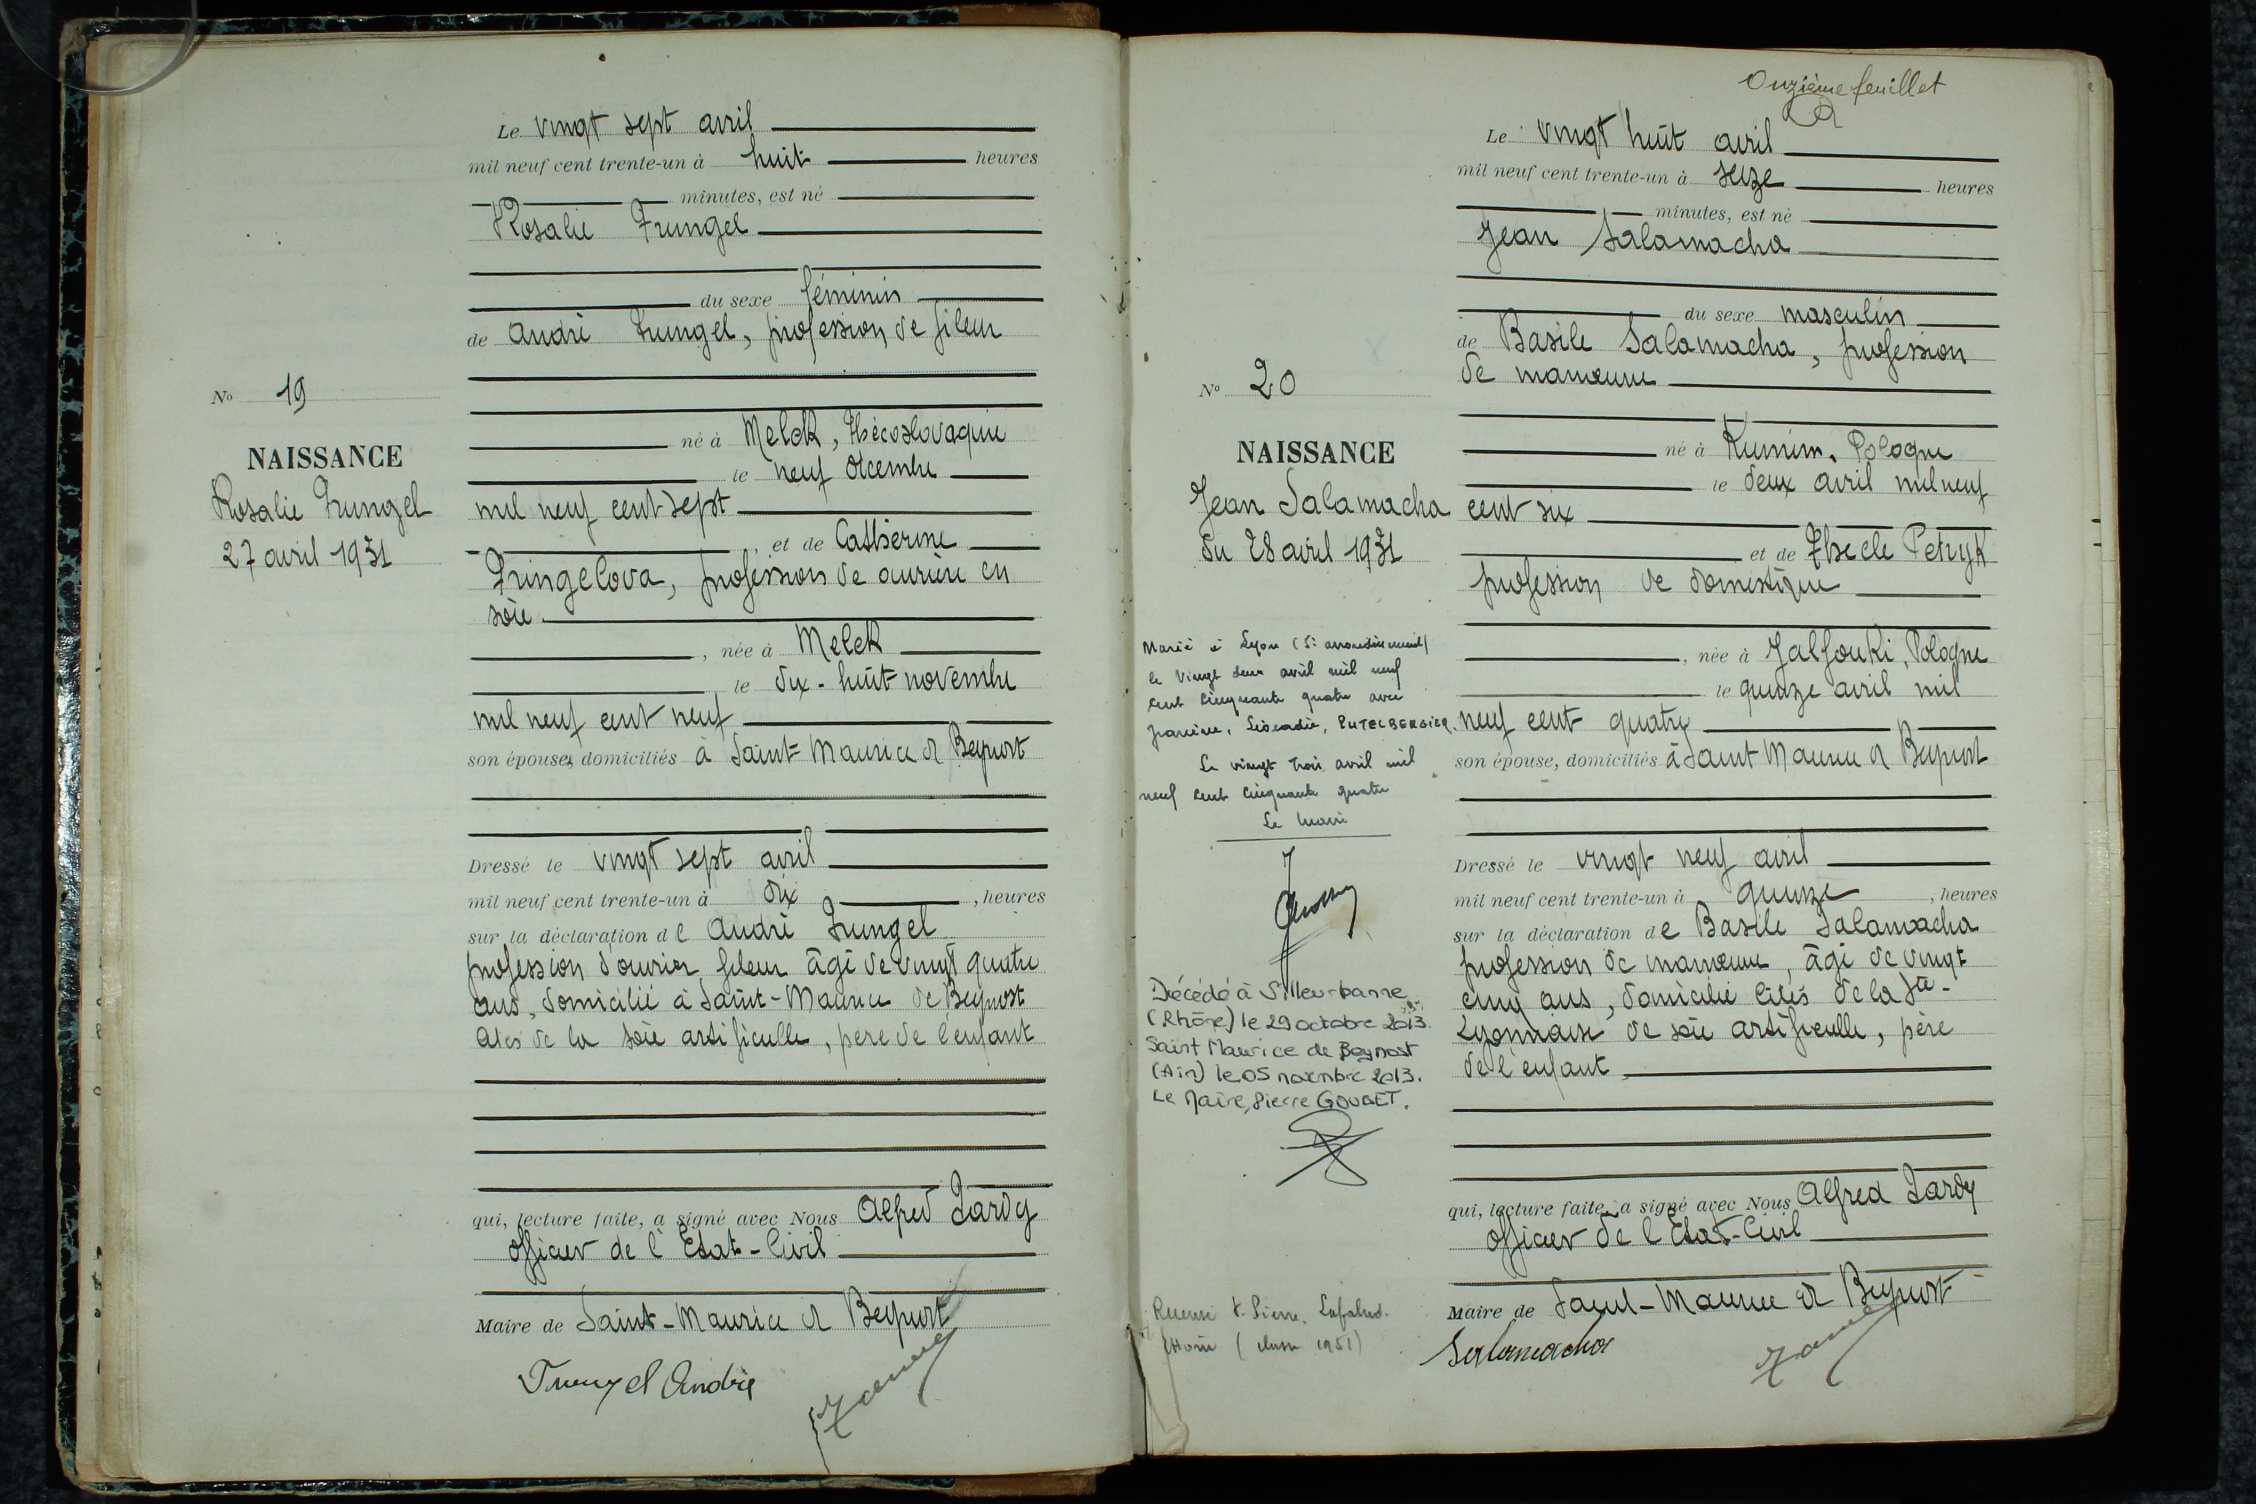 Le vingt sept avril
mil neuf cent trente-un à huit heures
minutes, est né
Rosalie
du sexe féminin
de André profession de fileur
né à Melck, Thécoslovaquie
le neuf décembre
mil neuf cent sept
et de Cathérine
profession de ouvrière en
soie
, née à Melck
le dix-huit novembre
mil neuf cent neuf
son épouse, domiciliés à Saint-Maurice de Beynost
Dressé le vingt sept avril
mil neuf cent trente-un à dix , heures
sur la déclaration de André
profession d'ouvrier fileur âgé de vingt quatre
ans, domicilié à Saint-Maurice de Beynost
de la soie artificielle, père de l'enfant
qui, lecture faite, a signé avec Nous Alfred
officier de l'Etat-Civil
Maire de Saint-Maurice de Beynost
André
No 19
NAISSANCE
Rosalie
27 avril 1931
Onzième feuillet
Le vingt huit avril
mil neuf cent trente-un à seize heures
minutes, est né
Jean Salamacha
du sexe masculin
de Basile Salamacha, profession
de manœuvre
né à Pologne
le deux avril mil neuf
cent six
et de Thecle Petryk
profession de domestique
, née à Jalfouki, Pologne
le quinze avril mil
neuf cent quatre
son épouse, domiciliés à Saint Maurice de Beynost
Dressé le vingt neuf avril
mil neuf cent trente-un à quinze , heures
sur la déclaration de Basile Salamacha
profession de manœuvre, âgé de vingt
cinq ans, domicilié cités de la Sté
Lyonnaise de soie artificielle, père
de l'enfant
qui, lecture faite, a signé avec Nous Alfred
officier de l'Etat-Civil
Maire de Saint-Maurice de Beynost
Salamacha
No 20
NAISSANCE
Jean Salamacha
du 28 avril 1931
Marié à Lyon (5e arrondissement)
le vingt deux avril mil neuf
cent cinquante quatre avec
Léocadie, PUTELBERGIER.
Le vingt trois avril mil
neuf cent cinquante quatre
Le Maire
Décédé à Villeurbanne
(Rhône) le 29 octobre 2013.
Saint Maurice de Beynost
(Ain) le 05 novembre 2013.
Le Maire, Pierre GOUBET.
Pierre
(classe 1951)